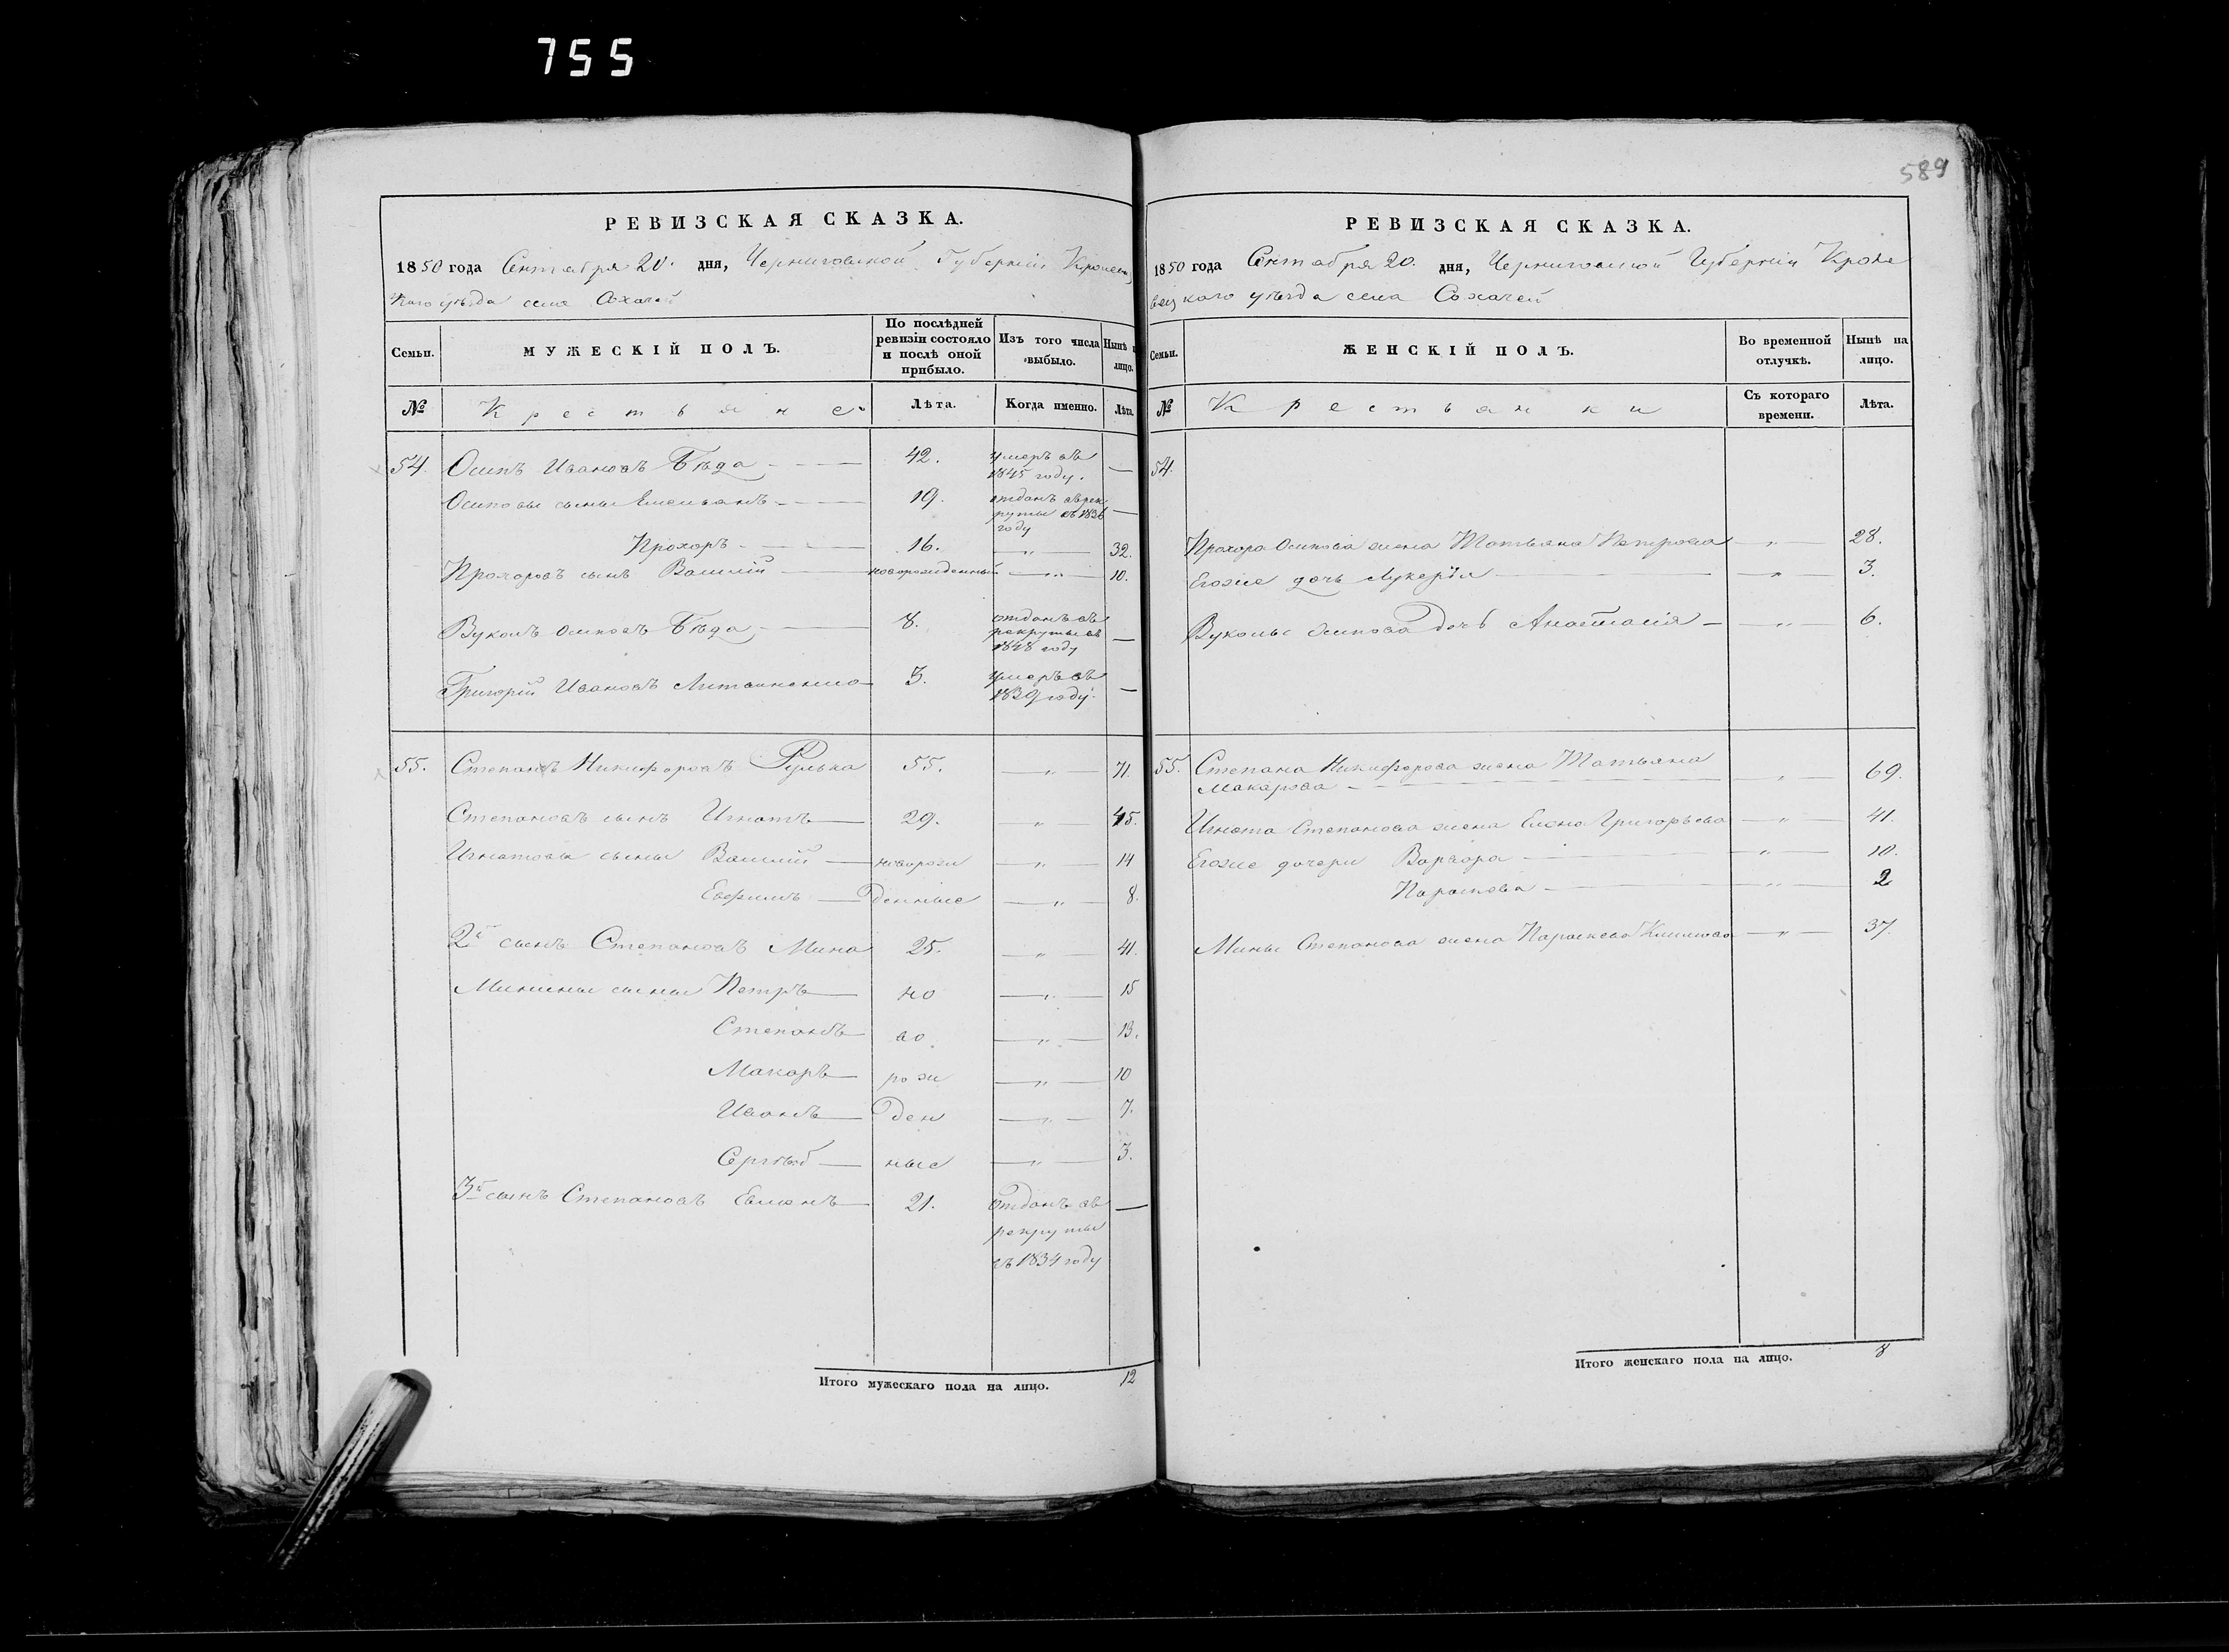 755
589
РЕВИЗСКАЯ СКАЗКА.
1850 года Сентября 20. дня, Черниговской Губерніи Кролевец
каго уѣзда села Сохачей
Семьи. МУЖЕСКІЙ ПОЛЪ. По послѣдней ревизіи состояло и послѣ оной прибыло. Изъ того числа выбыло. Нынѣ н лицо.
№ Крестьяне Лѣта. Когда именно. Лѣта.
54. Осипъ Ивановъ Бѣда 42. умеръ въ
1845 году. —
Осиповы сыны Емельянъ 19. отданъ в рек
руты въ 1836 —
году
Прохоръ 16. — " — 32.
Прохоровъ сынъ Василій новорожденный — " — 10.
Вуколъ Осиповъ Бѣда 8. отданъ въ
рекруты въ —
1848 году
Григорій Ивановъ 3. умеръ въ
1839 году. —
55. Степанъ Никифоровъ 55. — " — 71.
Степановъ сынъ Игнатъ 29. — " — 45.
Игнатовы сыны Василій новорож — " — 14
Евфимъ денные — " — 8.
2й сынъ Степановъ Мина 25. — " — 41.
Минины сыны Петръ но — " — 15
Степанъ во — " — 13.
Макаръ рож — " — 10
Иванъ ден — " — 7.
Сергѣй ные — " — 3.
3й сынъ Степановъ 21. Отданъ въ —
рекруты
въ 1834 году
Итого мужескаго пола на лицо. 12
РЕВИЗСКАЯ СКАЗКА.
1850 года Сентября 20. дня, Черниговской Губерніи Кроле
вец каго уѣзда села Сохачей
Семьи. ЖЕНСКІЙ ПОЛЪ. Во временной отлучкѣ. Нынѣ на лицо.
№ Крестьянки Съ котораго времени. Лѣта.
54.
Прохора Осипова жена Татьяна Петрова — " — 28.
Егоже дочь Лукерія — " — 3.
Вукола Осипова Дочь Анастасія — " — 6.
55. Степана Никифорова жена Татьяна
Макарова — " — 69.
Игната Степанова жена Елена Григорьева — " — 41.
Егоже дочери Варвара — " — 10.
Параскева — " — 2
Мины Степанова жена Параскева — " — 37.
Итого женскаго пола на лицо. 8